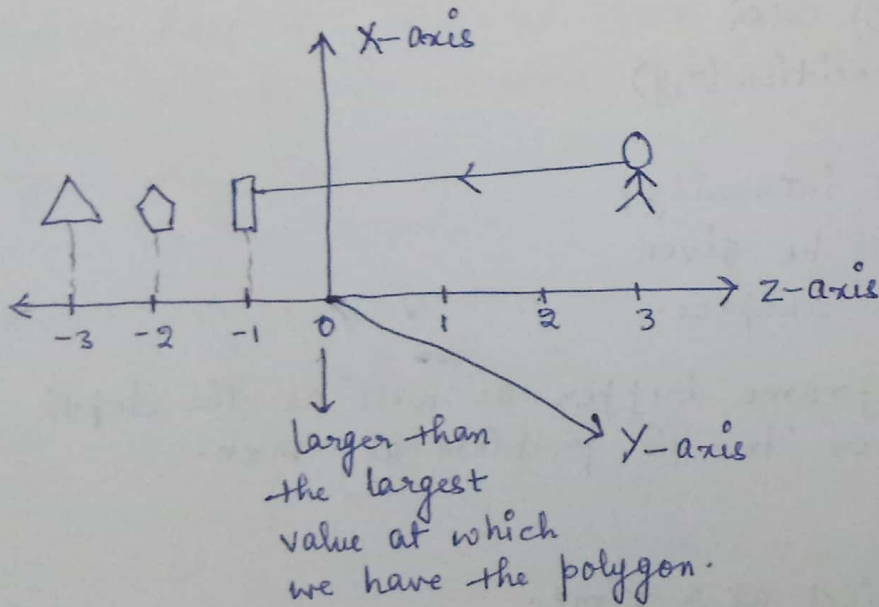 X-axis
Z-axis
-3 -2 -1 0 1 2 3
Y-axis
larger than
the largest
value at which
we have the polygon.